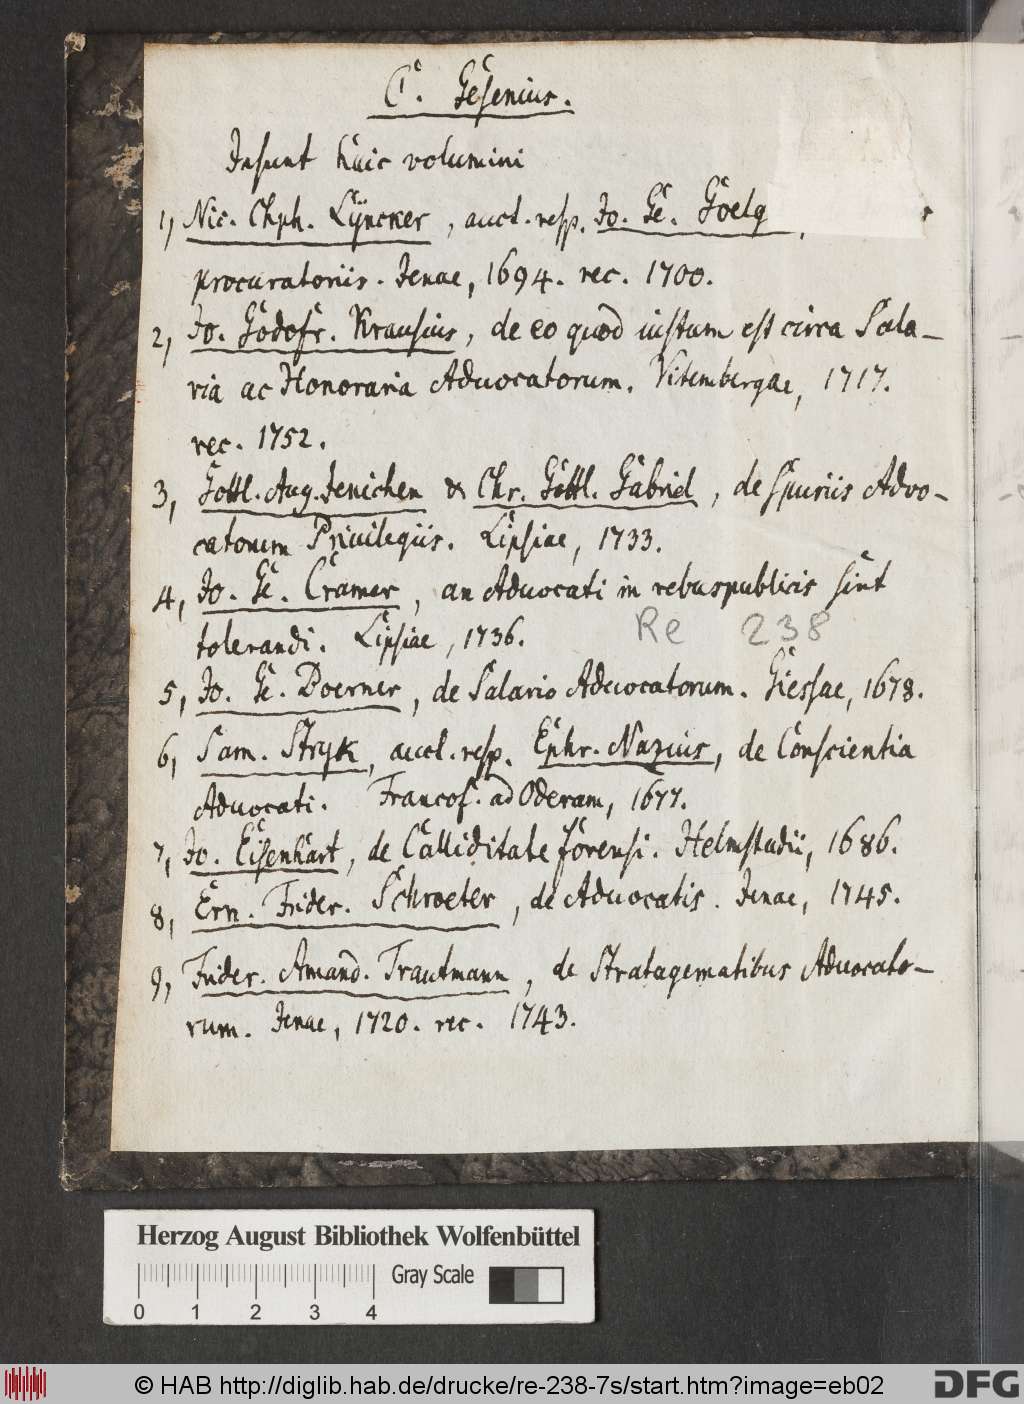 C. Gesenius.
Insunt huic volumini
1, Nic. Chph. Lÿncker, auct. resp. Jo. Ge. Goelg
procuratoriis. Jenae, 1694. rec. 1700.
2, Jo. Godofr. Krausius, de eo quod iustum est circa Sala-
ria ac Honoraria Advocatorum. Vitembergae, 1717.
rec. 1752.
3, Gottl. Aug. Jenichen & Chr. Gottl. Gabriel, de spuriis Advo-
catorum Privilegiis. Lipsiae, 1733.
4, Jo. Ge. Cramer, an Advocati in rebuspublicis sint
tolerandi. Lipsiae, 1736.
Re 238
5, Jo. Ge. Doerner, de Salario Advocatorum. Giessae, 1678.
6, Sam. Stryk, auct. resp. Ephr. Nazius, de Conscientia
Advocati. Francof. ad Oderam, 1677.
7, Jo. Eisenhart, de Calliditate forensi. Helmstadii, 1686.
8, Ern. Frider. Schroeter, de Advocatis. Jenae, 1745.
9, Frider. Amand. Trautmann, de Stratagematibus Advocato-
rum. Jenae, 1720. rec. 1743.
Herzog August Bibliothek Wolfenbüttel
Gray Scale
0 1 2 3 4
© HAB http://diglib.hab.de/drucke/re-238-7s/start.htm?image=eb02
DFG